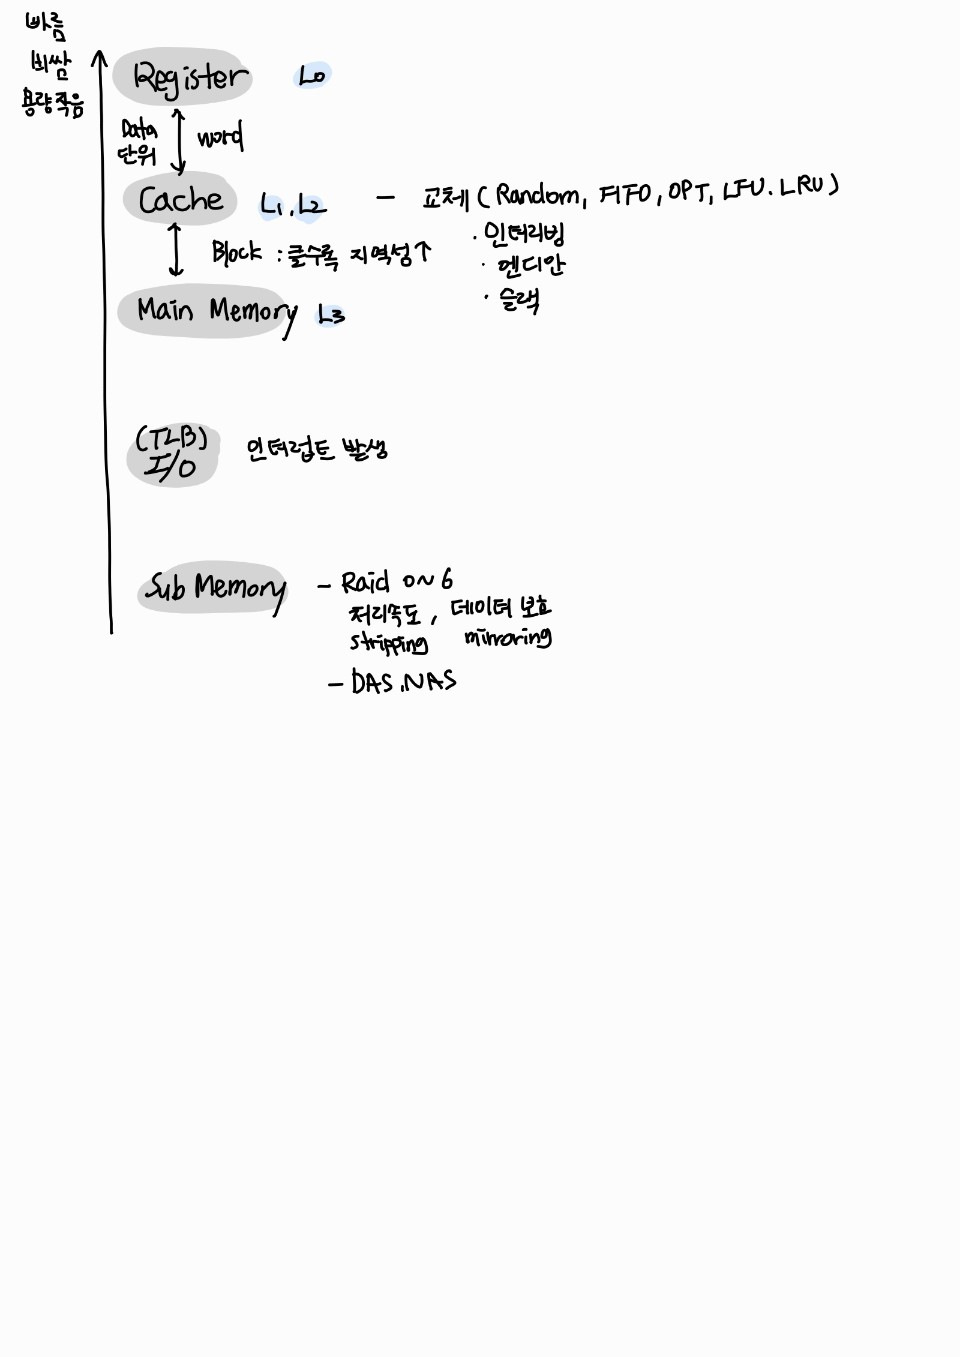 빠름
비쌈
용량작음
Register L0
Data
단위
word
Cache L1, L2 - 교체 (Random, FIFO, OPT, LFU. LRU)
Block : 클수록 지역성↑
· 인터리빙
· 엔디안
· 슬랙
Main Memory L3
(TLB)
I/O
인터럽트 발생
Sub Memory - Raid 0~6
처리속도, 데이터 보호
stripping mirroring
- DAS, NAS